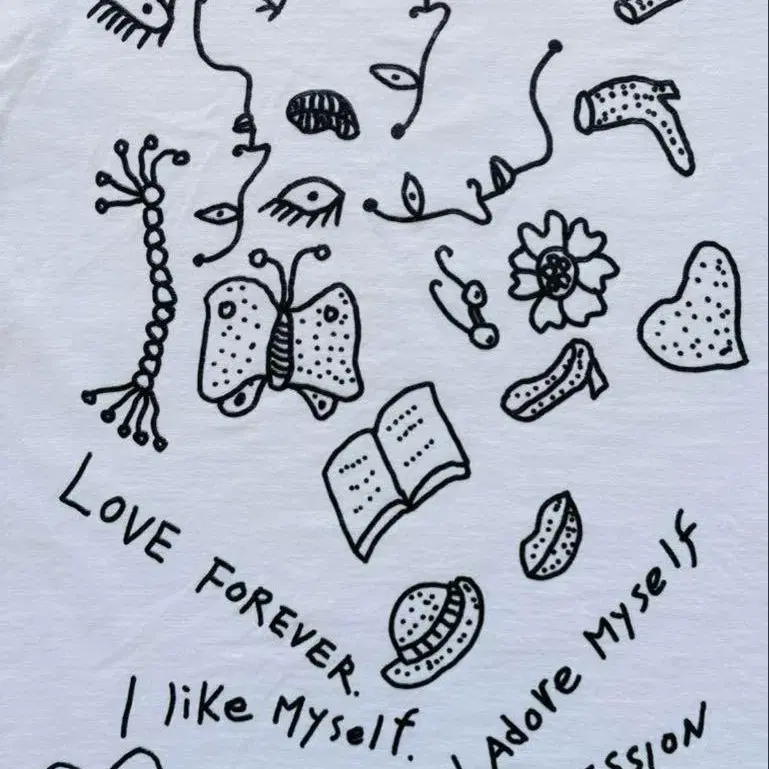 LOVE FOREVER.
I like Myself.
I Adore Myself